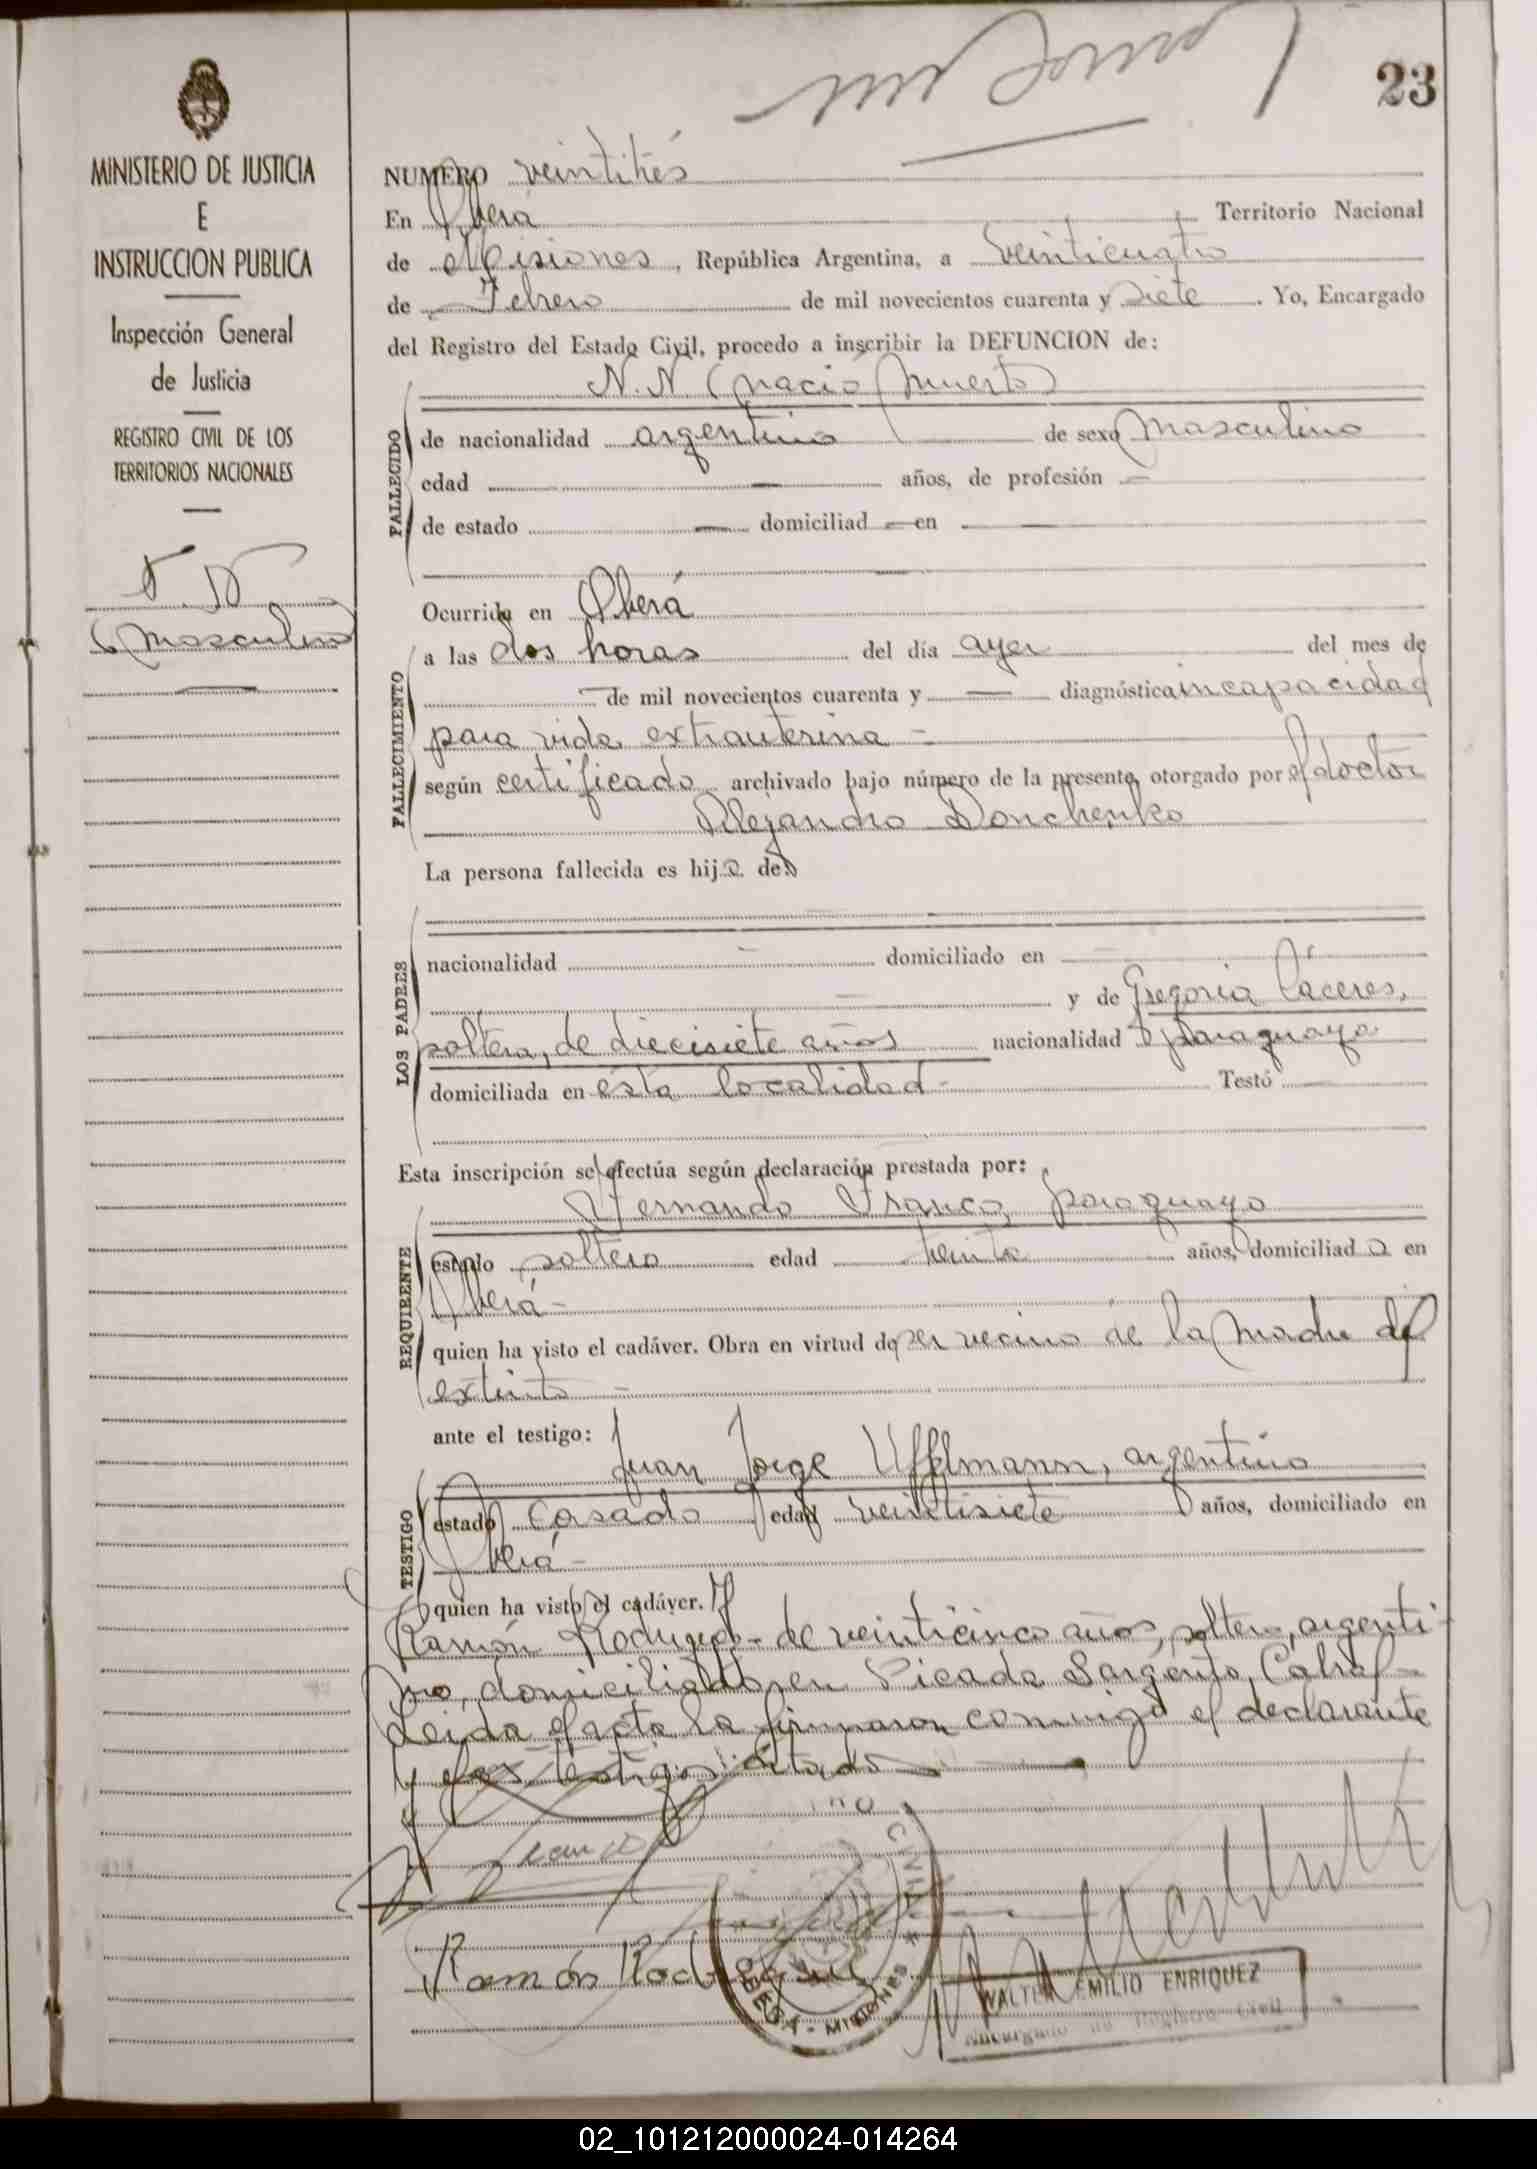 23
MINISTERIO DE JUSTICIA
E
INSTRUCCION PUBLICA
Inspección General
de Justicia
REGISTRO CIVIL DE LOS
TERRITORIOS NACIONALES
N.N.
(masculino)
NUMERO veintitrés
En Oberá Territorio Nacional
de Misiones, República Argentina, a veinticuatro
de Febrero de mil novecientos cuarenta y siete. Yo, Encargado
del Registro del Estado Civil, procedo a inscribir la DEFUNCION de:
N.N (nació muerto)
FALLECIDO
de nacionalidad argentino de sexo masculino
edad — años, de profesión —
de estado — domiciliad — en —
Ocurrida en Oberá
FALLECIMIENTO
a las dos horas del día ayer del mes de
— de mil novecientos cuarenta y — diagnóstica incapacidad
para vida extrauterina -
según certificado archivado bajo número de la presente, otorgado por el doctor
Alejandro Donchenko
La persona fallecida es hijo de
LOS PADRES
nacionalidad — domiciliado en —
— y de Gregoria Cáceres,
soltera, de diecisiete años nacionalidad paraguaya
domiciliada en ésta localidad - Testó —
Esta inscripción se efectúa según declaración prestada por:
REQUIRENTE
Hernando Franco, paraguayo
estado soltero edad treinta años, domiciliado en
Oberá -
quien ha visto el cadáver. Obra en virtud de ser vecino de la madre del
extinto -
ante el testigo:
TESTIGO
Juan Jorge Uffelmann, argentino
estado casado edad veintisiete años, domiciliado en
Oberá -
quien ha visto el cadáver. Y
Ramón Rodriguez - de veinticinco años, soltero, argenti-
no, domiciliado en Picada Sargento Cabral -
Leida el acta la firmaron conmigo el declarante
y los testigos citados —
Franco
Ramón Rodriguez
CIVIL * MISIONES
WALTER EMILIO ENRIQUEZ
Encargado de Registro Civil
02_101212000024-014264